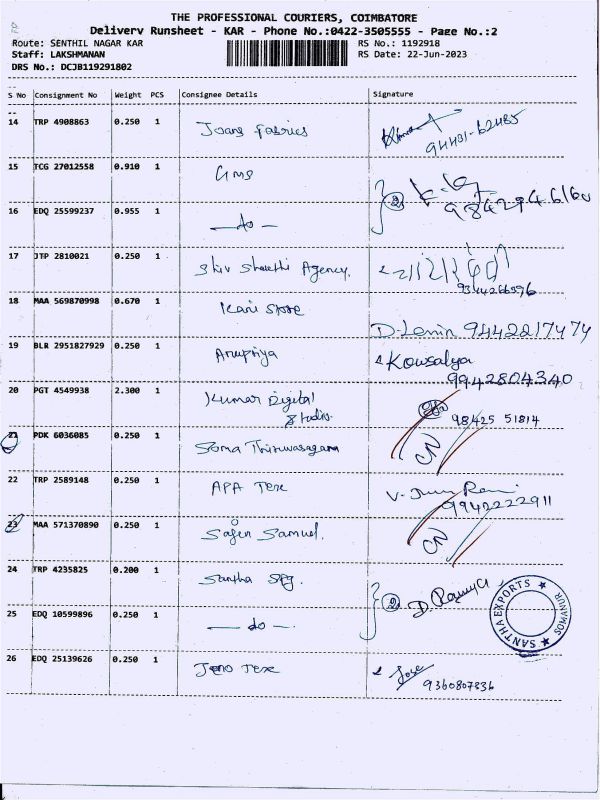 THE PROFESSIONAL COURIERS, COIMBATORE
Delivery Runsheet - KAR - Phone No.:0422-3505555 - Page No.:2
Route: SENTHIL NAGAR KAR RS No.: 1192918
Staff: LAKSHMANAN RS Date: 22-Jun-2023
DRS No.: DCJB119291802
S No Consignment No Weight PCS Consignee Details Signature
14 TRP 4908863 0.250 1 Joans Fabrics 94431-62485
15 TCG 27012558 0.910 1 GMS
② 9842946160
16 EDQ 25599237 0.955 1 — do —
17 JTP 2810021 0.250 1 Shiv Shakthi Agency.
9344266596
18 MAA 569870998 0.670 1 Kani Store
D. Lenin 9442217474
19 BLR 2951827929 0.250 1 Anupriya Kowsalya
9942804340
20 PGT 4549938 2.300 1 Kumar Digital Studio. 98425 51814
21 PDK 6036085 0.250 1 Soma Thiruvasagam CN
22 TRP 2589148 0.250 1 APA Tex
9942222911
23 MAA 571370890 0.250 1 Sajin Samuel. CN
24 TRP 4235825 0.200 1 Santha Spg. ② D.
SANTHA EXPORTS ★ SOMANUR ★
25 EDQ 10599896 0.250 1 — do —
26 EDQ 25139626 0.250 1 Jeno Tex Jose
9360807336